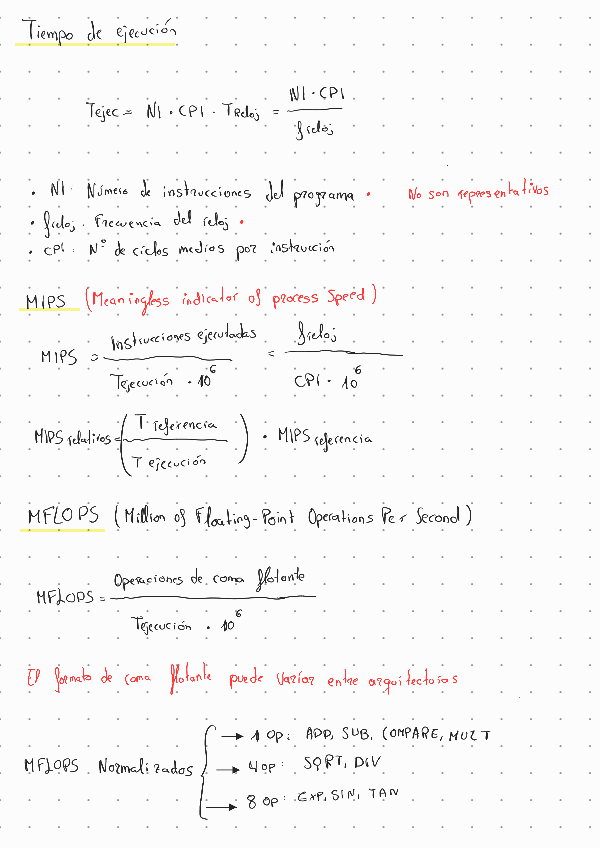 Tiempo de ejecución
Tejec = NI · CPI · TReloj = NI · CPI / freloj
· NI: Número de instrucciones del programa · No son representativos
· freloj: Frecuencia del reloj ·
· CPI: Nº de ciclos medios por instrucción
MIPS (Meaningless indicator of process Speed)
MIPS = Instrucciones ejecutadas / Tejecución · 10^6 = freloj / CPI · 10^6
MIPS relativos = (T referencia / T ejecución) · MIPS referencia
MFLOPS (Million of Floating-Point Operations Per Second)
MFLOPS = Operaciones de coma flotante / Tejecución · 10^6
El formato de coma flotante puede variar entre arquitecturas
MFLOPS Normalizados { → 1 op: ADD, SUB, COMPARE, MULT
→ 4 op: SQRT, DIV
→ 8 op: EXP, SIN, TAN